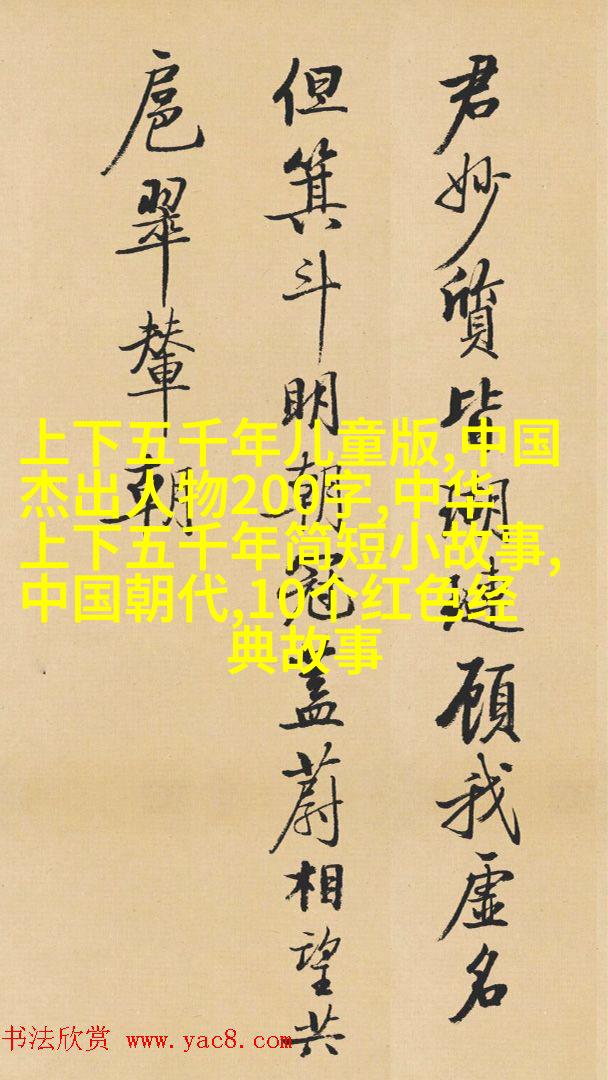 君妙質皆瑚璉顧我虛名
但箕斗明朝冠蓋蔚相望共
扈翠輦朝
上下五千年儿童版,中国
杰出人物200字,中华
上下五千年简短小故事,
中国朝代,10个红色经
典故事
书法欣赏 www.yac8.com